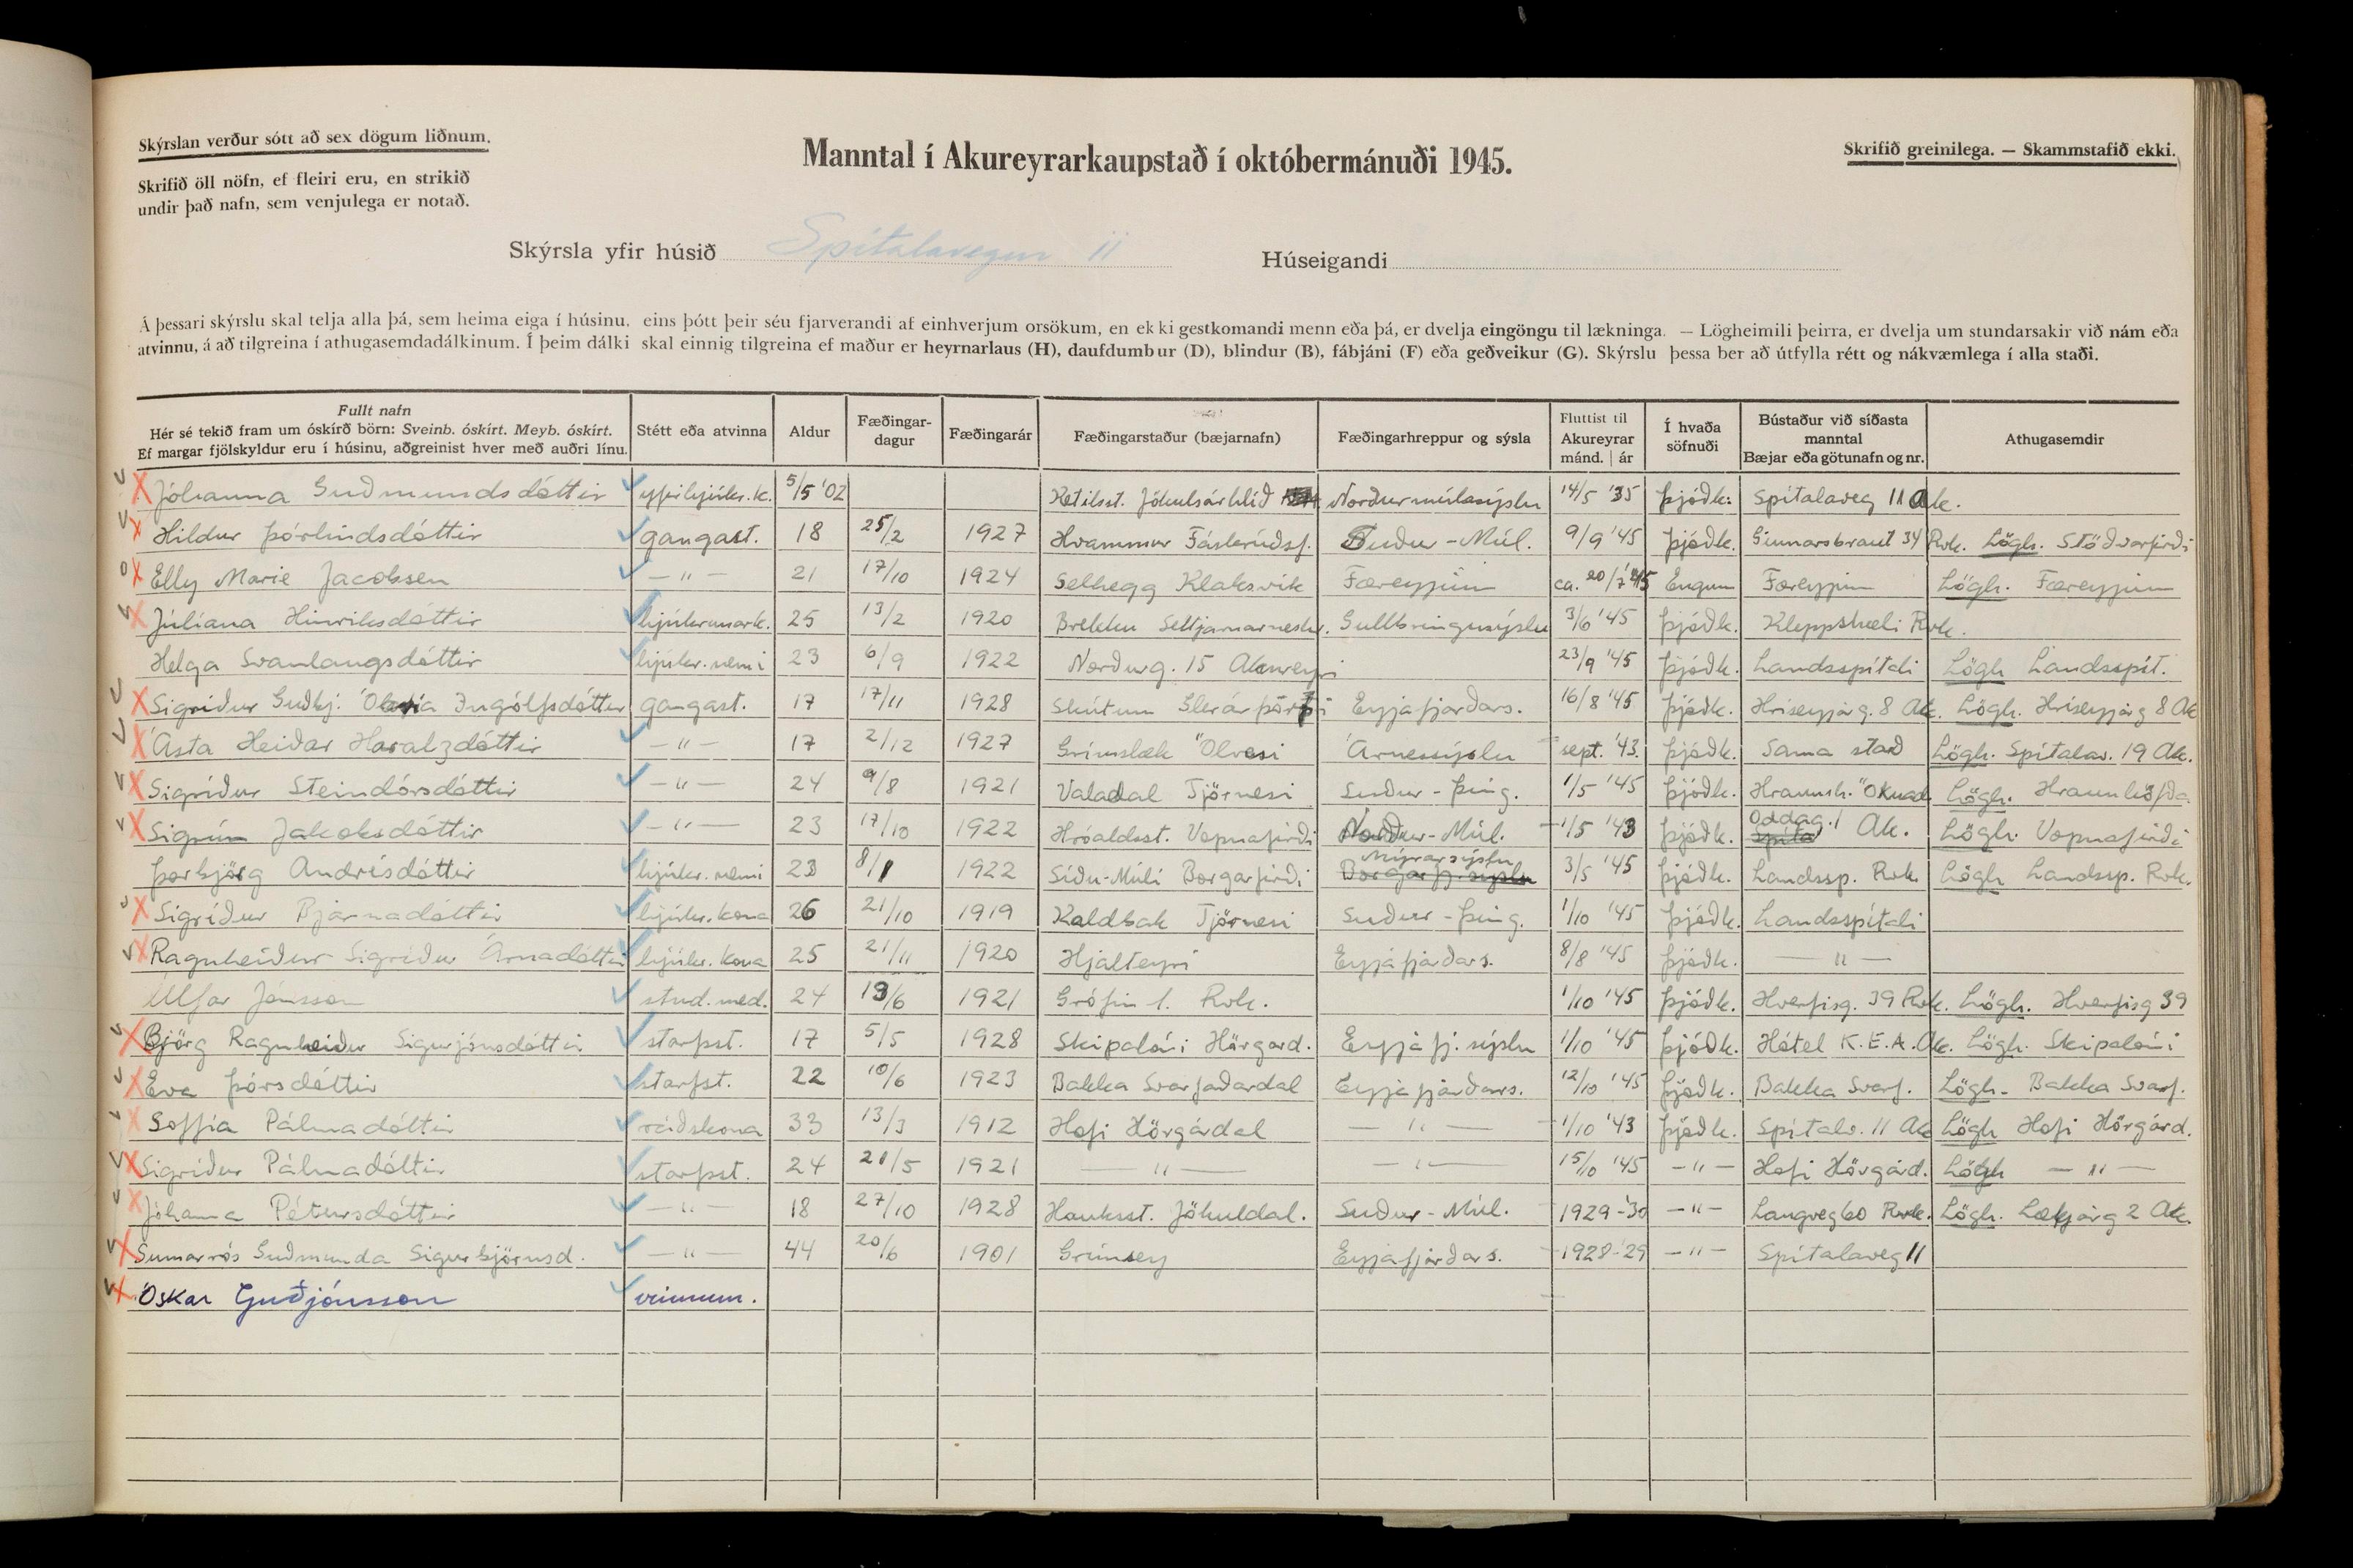 Skýrslan verður sótt að sex dögum liðnum.
Skrifið öll nöfn, ef fleiri eru, en strikið
undir það nafn, sem venjulega er notað.
Manntal í Akureyrarkaupstað í októbermánuði 1945.
Skrifið greinilega. — Skammstafið ekki.
Skýrsla yfir húsið Spítalavegur 11 Húseigandi
Á þessari skýrslu skal telja alla þá, sem heima eiga í húsinu, eins þótt þeir séu fjarverandi af einhverjum orsökum, en ekki gestkomandi menn eða þá, er dvelja eingöngu til lækninga. — Lögheimili þeirra, er dvelja um stundarsakir við nám eða
atvinnu, á að tilgreina í athugasemdadálkinum. Í þeim dálki skal einnig tilgreina ef maður er heyrnarlaus (H), daufdumbur (D), blindur (B), fábjáni (F) eða geðveikur (G). Skýrslu þessa ber að útfylla rétt og nákvæmlega í alla staði.
Fullt nafn
Hér sé tekið fram um óskírð börn: Sveinb. óskírt. Meyb. óskírt.
Ef margar fjölskyldur eru í húsinu, aðgreinist hver með auðri línu.
Stétt eða atvinna
Aldur
Fæðingar-
dagur
Fæðingarár
Fæðingarstaður (bæjarnafn)
Fæðingarhreppur og sýsla
Fluttist til
Akureyrar
mánd. | ár
Í hvaða
söfnuði
Bústaður við síðasta
manntal
Bæjar eða götunafn og nr.
Athugasemdir
Jóhanna Guðmundsdóttir yfirhjúkr.k. 5/5 '02 Ketilsst. Jökulsárhlíð Norðurmúlasýslu 14/5 '35 þjóðk: Spítalaveg 11 Ak.
Hildur Þórlindsdóttir gangast. 18 25/2 1927 Hvammur Fáskrúðsf. Suður-Múl. 9/9 '45 þjóðk. Gunnarsbraut 34 Rvk. Lögh. Stöðvarfirði
Elly Marie Jacobsen — " — 21 17/10 1924 Selhegg Klaksvík Færeyjum ca. 20/7 '45 Engum Færeyjum Lögh. Færeyjum
Júlíana Hinriksdóttir hjúkrunark. 25 13/2 1920 Brekku Seltjarnarneshr. Gullbringusýslu 3/6 '45 þjóðk. Kleppshæli Rvk.
Helga Svanlaugsdóttir hjúkr.nemi 23 6/9 1922 Norðurg. 15 Akureyri 23/9 '45 þjóðk. Landsspítali Lögh Landsspít.
Sigríður Guðbj. Ólafía Ingólfsdóttir gangast. 17 17/11 1928 Skútum Glerárþorpi Eyjafjarðars. 16/8 '45 þjóðk. Hríseyjarg. 8 Ak. Lögh. Hríseyjarg 8 Ak
Ásta Heiðar Haralzdóttir — " — 17 2/12 1927 Grímslæk Ölvesi Árnessýslu sept. '43. þjóðk. Sama stað Lögh. Spítalav. 19 Ak.
Sigríður Steindórsdóttir — " — 24 9/8 1921 Valadal Tjörnesi Suður-Þing. 1/5 '45 þjóðk. Hraunh. Öxnad. Lögh. Hraunhöfða
Sigrún Jakobsdóttir — " — 23 17/10 1922 Hróaldsst. Vopnafirði Norður-Múl. 1/5 '43 þjóðk. Oddag. 1 Ak. Lögh. Vopnafirði
Þorbjörg Andrésdóttir hjúkr.nemi 23 8/1 1922 Síðu-Múli Borgarfirði Borgarfj.sýslu Mýrarsýslu 3/5 '45 þjóðk. Landssp. Rvk. Lögh Landssp. Rvk.
Sigríður Bjarnadóttir hjúkr.kona 26 21/10 1919 Kaldbak Tjörnesi Suður-Þing. 1/10 '45 þjóðk. Landsspítali
Ragnheiður Sigríður Árnadóttir hjúkr.kona 25 21/11 1920 Hjalteyri Eyjafjarðars. 8/8 '45 þjóðk. — " —
Úlfar Jónsson stud.med. 24 13/6 1921 Grófin 1. Rvk. 1/10 '45 þjóðk. Hverfisg. 39 Rvk. Lögh. Hverfisg 39
Björg Ragnheiður Sigurjónsdóttir starfst. 17 5/5 1928 Skipalóni Hörgard. Eyjafj.sýslu 1/10 '45 þjóðk. Hótel K.E.A. Ak. Lögh. Skipalóni
Eva Þórsdóttir starfst. 22 10/6 1923 Bakka Svarfaðardal Eyjafjarðars. 12/10 '45 þjóðk. Bakka Svarf. Lögh. Bakka Svarf.
Soffía Pálmadóttir ráðskona 33 13/3 1912 Hofi Hörgárdal — " — 1/10 '43 þjóðk. Spítalv. 11 Ak Lögh Hofi Hörgárd.
Sigríður Pálmadóttir starfst. 24 21/5 1921 — " — — " — 15/10 '45 — " — Hofi Hörgárd. Lögh — " —
Jóhanna Pétursdóttir — " — 18 27/10 1928 Hauksst. Jökuldal. Suður-Múl. 1929-'30 — " — Laugveg 60 Rvk. Lögh. Lækjarg 2 Ak.
Sumarrós Guðmunda Sigurbjörnsd. — " — 44 20/6 1901 Grímsey Eyjafjarðars. 1928-'29 — " — Spítalaveg 11
Óskar Guðjónsson vinnum.